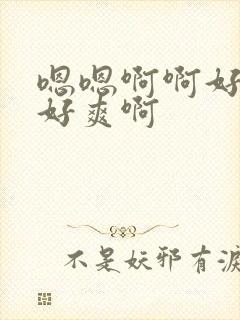 嗯嗯啊啊好
好爽啊
不是妖邪有泪